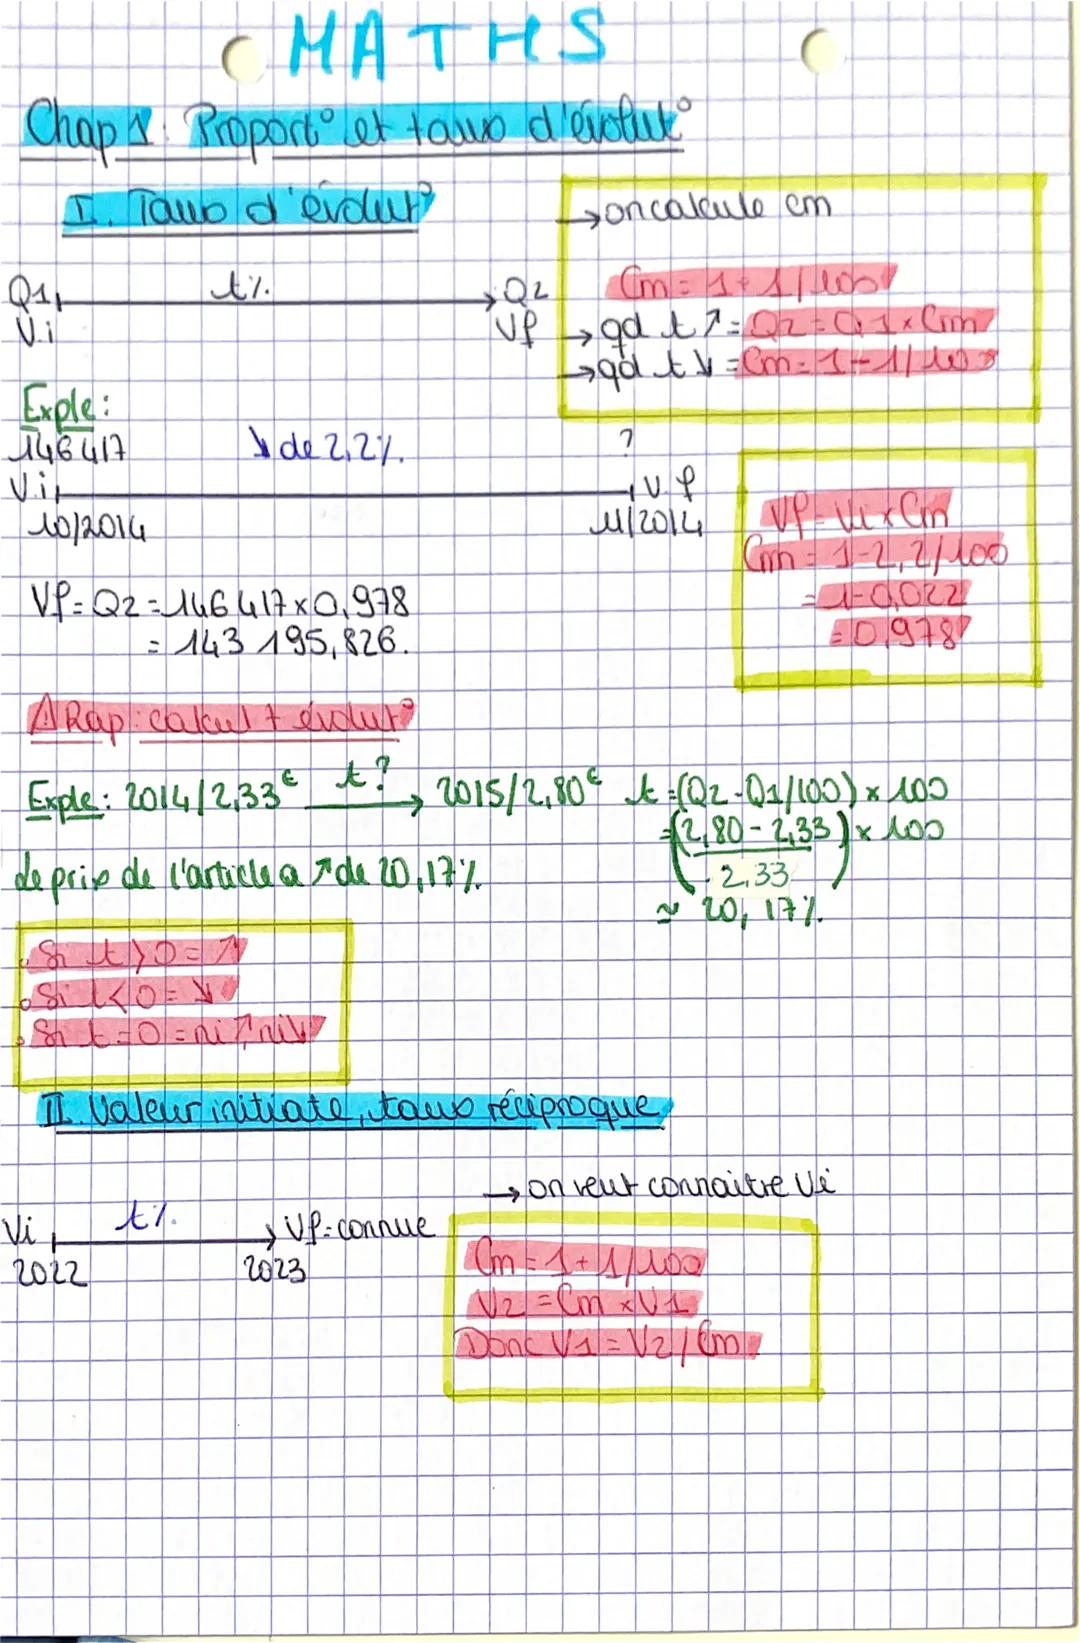 MATHS
Chap 1: Proport° et taux d'évolut°
I. Taux d'évolut°
→ on calcule cm
Q1 t% Q2
V.i Vf
Cm = 1 + 1/100
→ qd t ↗ = Q2 = Q1 x Cm
→ qd t ↘ = Cm = 1 - 1/100
Exple:
146 417 ↘ de 2,2%. ?
V.i V.f
10/2014 11/2014
Vf = Vi x Cm
Cm = 1-2,2/100
= 1-0,022
= 0,978
Vf = Q2 = 146 417 x 0,978
= 143 195,826.
⚠ Rap: calcul t évolut°
Exple: 2014/2,33€ t? → 2015/2,80€ t = (Q2-Q1/100) x 100
= (2,80 - 2,33 / 2,33) x 100
le prix de l'article a ↗ de 20,17%.
≈ 20,17%.
• Si t > 0 = ↗
• Si t < 0 = ↘
• Si t = 0 = ni ↗ ni ↘
II. Valeur initiate, taux réciproque
→ on veut connaitre Vi
Vi t% → Vf = connue
2022 2023
Cm = 1 + 1/100
V2 = Cm x V1
Donc V1 = V2 / Cm